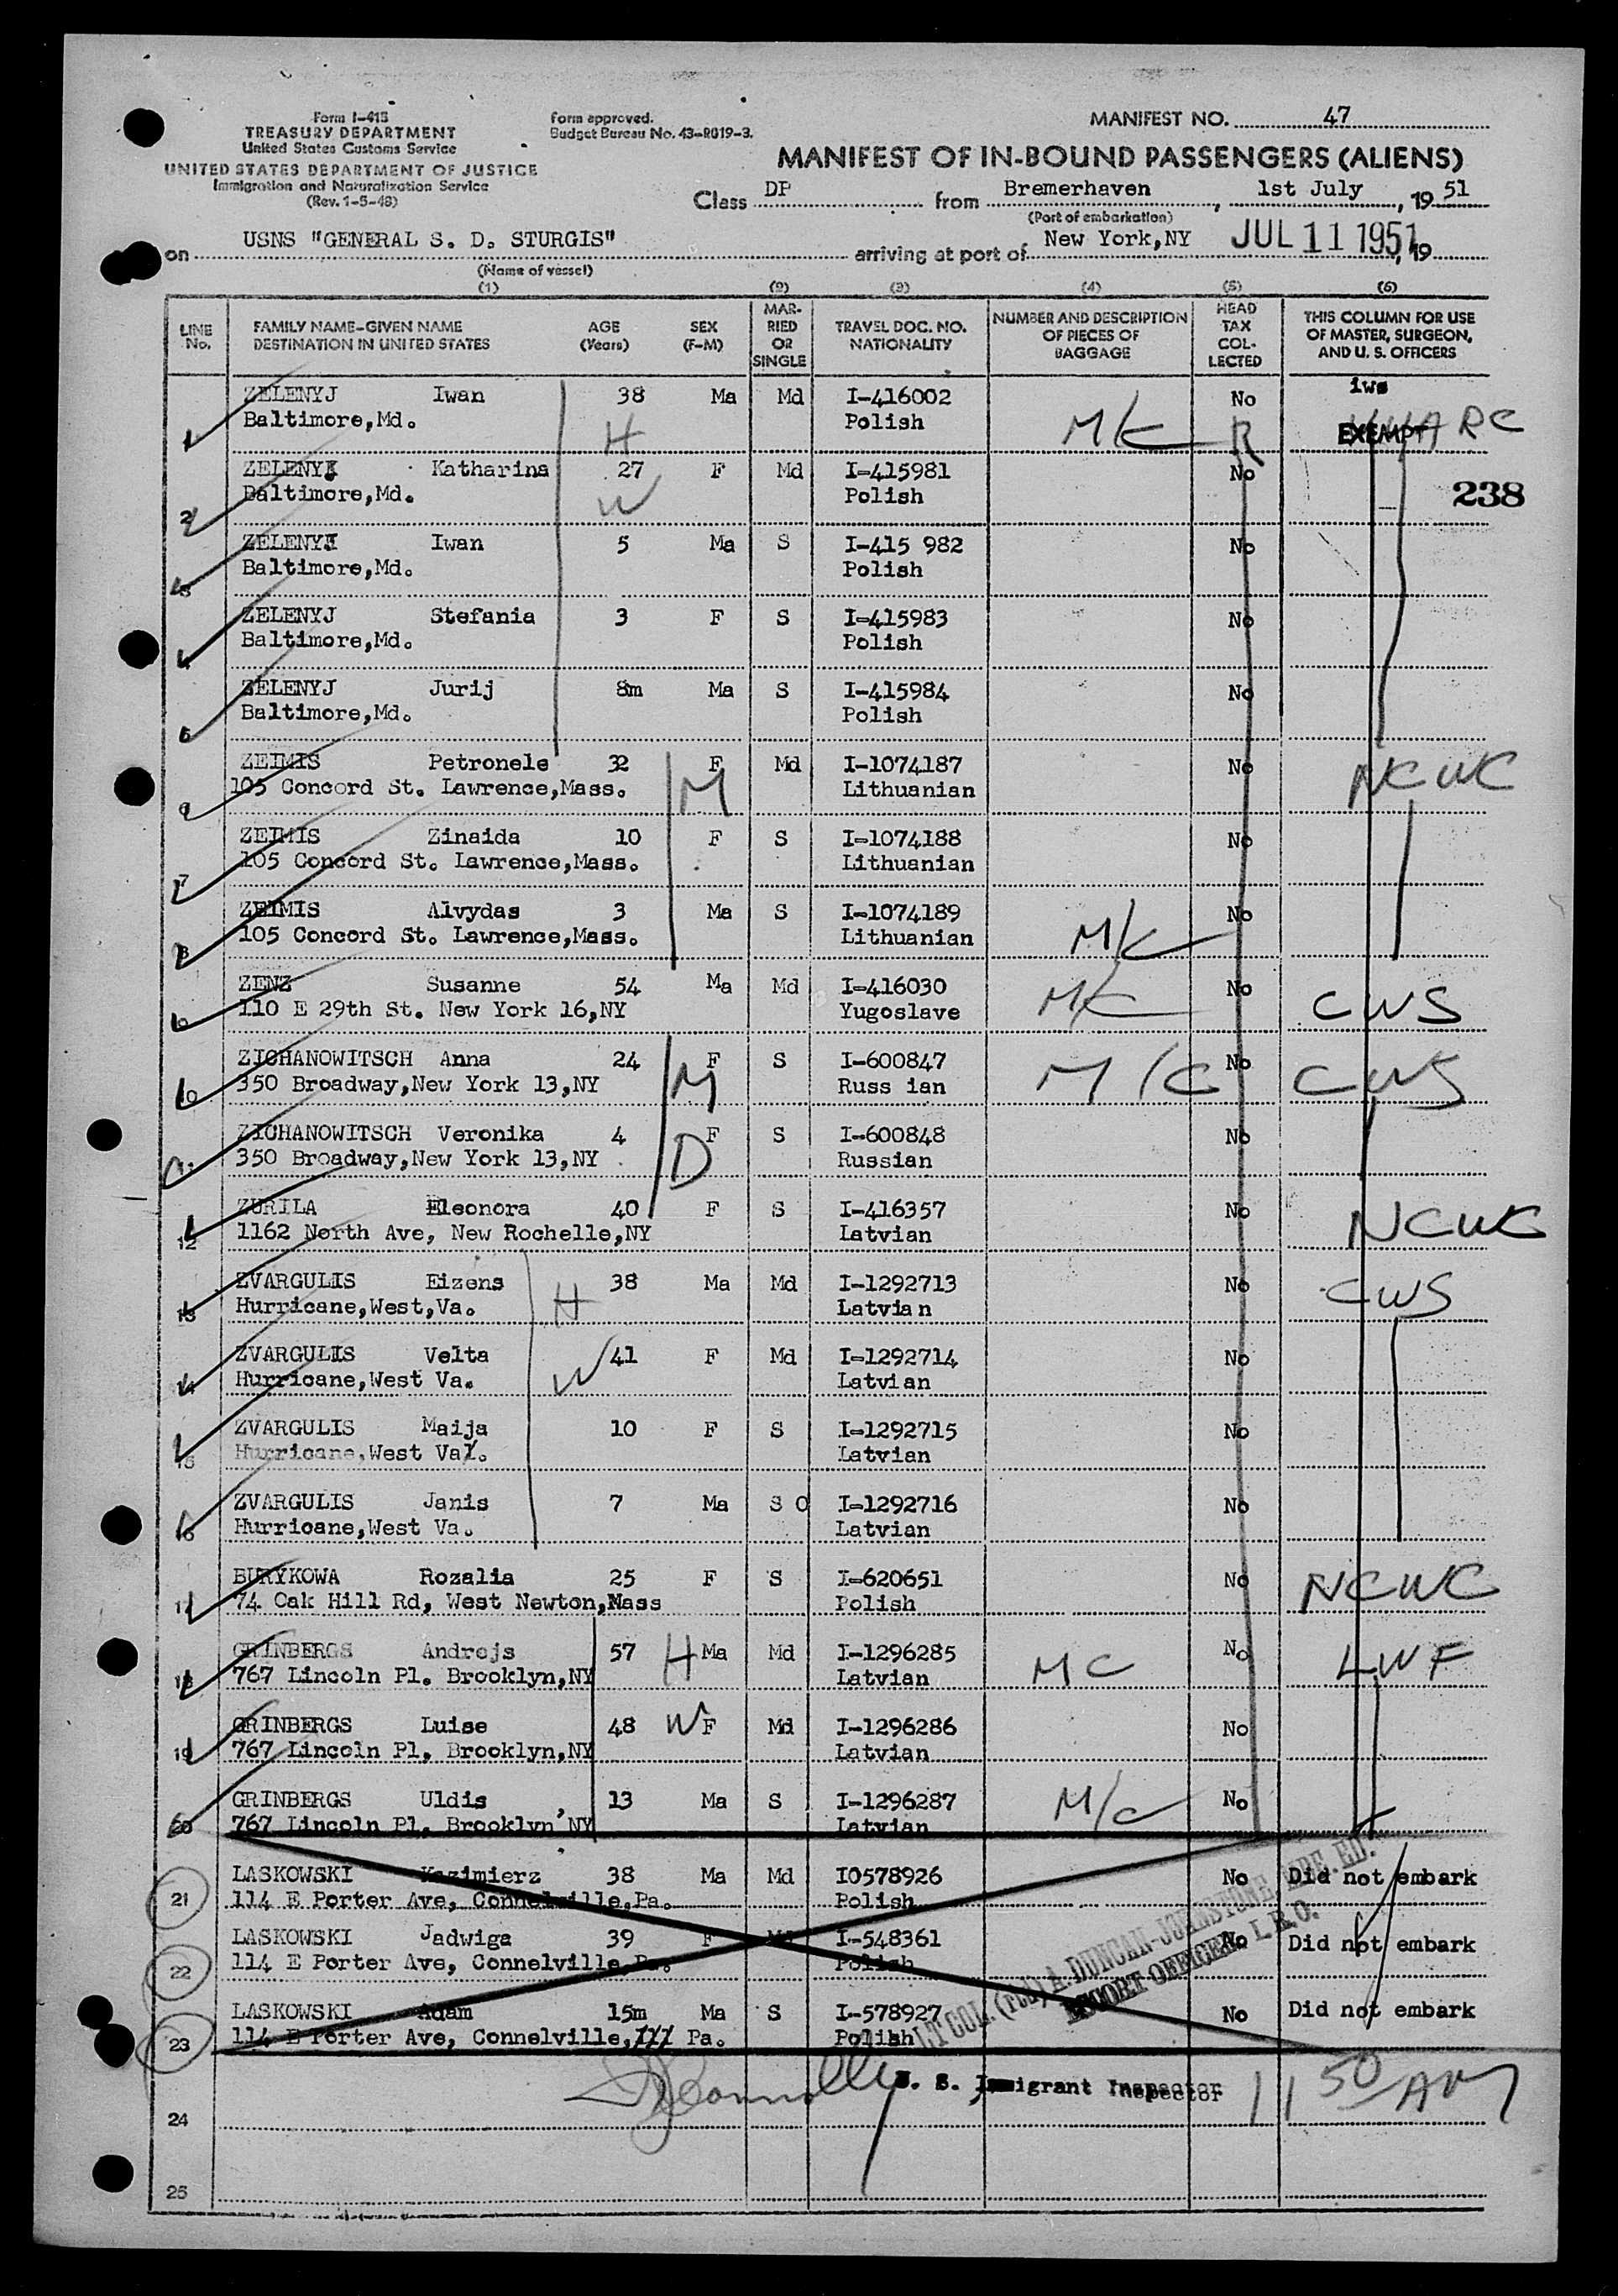 Form I-415
TREASURY DEPARTMENT
United States Customs Service
UNITED STATES DEPARTMENT OF JUSTICE
Immigration and Naturalization Service
(Rev. 1-5-48)
Form approved.
Budget Bureau No. 43-R019-3.
MANIFEST NO. 47
MANIFEST OF IN-BOUND PASSENGERS (ALIENS)
Class DP from Bremerhaven, 1st July, 19 51
(Port of embarkation)
on USNS "GENERAL S. D. STURGIS" arriving at port of New York,NY JUL 11 1951, 19
(Name of vessel)
(1) (2) (3) (4) (5) (6)
LINE No. FAMILY NAME-GIVEN NAME DESTINATION IN UNITED STATES AGE (Years) SEX (F-M) MARRIED OR SINGLE TRAVEL DOC. NO. NATIONALITY NUMBER AND DESCRIPTION OF PIECES OF BAGGAGE HEAD TAX COLLECTED THIS COLUMN FOR USE OF MASTER, SURGEON, AND U. S. OFFICERS
iws
ZELENYJ Iwan 38 Ma Md I-416002 No
1 Baltimore,Md. H Polish M/C R EXEMPT ARC
ZELENYJ Katharina 27 F Md I-415981 No
2 Baltimore,Md. W Polish 238
ZELENYJ Iwan 5 Ma S I-415 982 No
3 Baltimore,Md. Polish
ZELENYJ Stefania 3 F S I-415983 No
4 Baltimore,Md. Polish
ZELENYJ Jurij 8m Ma S I-415984 No
5 Baltimore,Md. Polish
ZEIMIS Petronele 32 F Md I-1074187 No NCWC
6 105 Concord St. Lawrence,Mass. M Lithuanian
ZEIMIS Zinaida 10 F S I-1074188 No
7 105 Concord St. Lawrence,Mass. Lithuanian
ZEIMIS Alvydas 3 Ma S I-1074189 No
8 105 Concord St. Lawrence,Mass. Lithuanian M/C
ZENZ Susanne 54 Ma Md I-416030 M/C No CWS
9 110 E 29th St. New York 16,NY Yugoslave
ZICHANOWITSCH Anna 24 F S I-600847 No
10 350 Broadway,New York 13,NY M Russ ian M/C CWS
ZICHANOWITSCH Veronika 4 F S I-600848 No
11 350 Broadway,New York 13,NY D Russian
ZURILA Eleonora 40 F S I-416357 No NCWC
12 1162 North Ave, New Rochelle,NY Latvian
ZVARGULIS Eizens 38 Ma Md I-1292713 No CWS
13 Hurricane,West,Va. H Latvian
ZVARGULIS Velta 41 F Md I-1292714 No
14 Hurricane,West Va. W Latvian
ZVARGULIS Maija 10 F S I-1292715 No
15 Hurricane,West Va. Latvian
ZVARGULIS Janis 7 Ma S O I-1292716 No
16 Hurricane,West Va. Latvian
BURYKOWA Rozalia 25 F S I-620651 No NCWC
17 74 Oak Hill Rd, West Newton,Mass Polish
GRINBERGS Andrejs 57 H Ma Md I-1296285 No LWF
18 767 Lincoln Pl. Brooklyn,NY Latvian MC
GRINBERGS Luise 48 W F Md I-1296286 No
19 767 Lincoln Pl. Brooklyn,NY Latvian
GRINBERGS Uldis 13 Ma S I-1296287 M/C No
20 767 Lincoln Pl. Brooklyn NY Latvian
LASKOWSKI Kazimierz 38 Ma Md I0578926 No Did not embark
21 114 E Porter Ave, Connelville,Pa. Polish
LASKOWSKI Jadwiga 39 F Md I-548361 No Did not embark
22 114 E Porter Ave, Connelville,Pa. Polish
LASKOWSKI Adam 15m Ma S I-578927 No Did not embark
23 114 E Porter Ave, Connelville, Pa. Polish
LT COL. (rtd) A. DUNCAN-JOHNSTONE
ESCORT OFFICER I.R.O.
U. S. Immigrant Inspector 11 50 AM
24
25